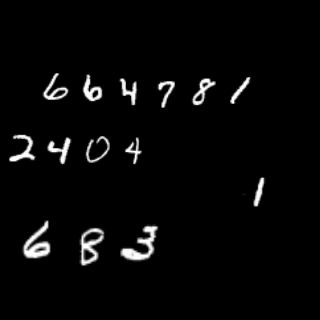 664781
2404
1
683